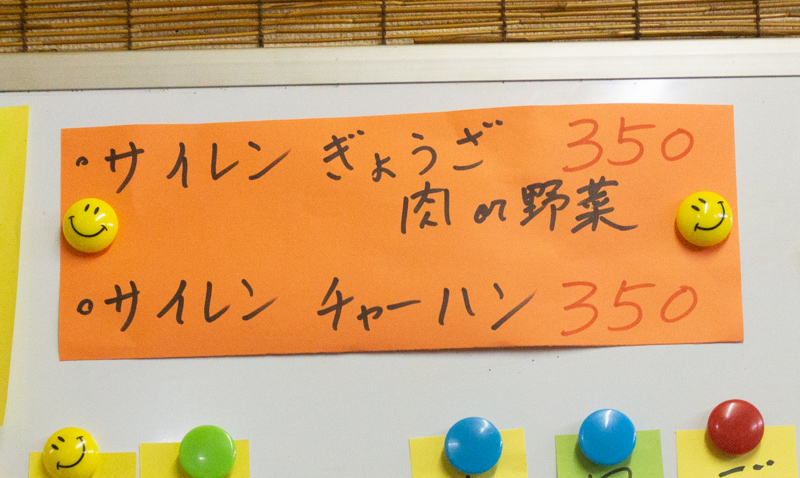 ・サイレン ぎょうざ 350
肉 or 野菜
・サイレン チャーハン 350